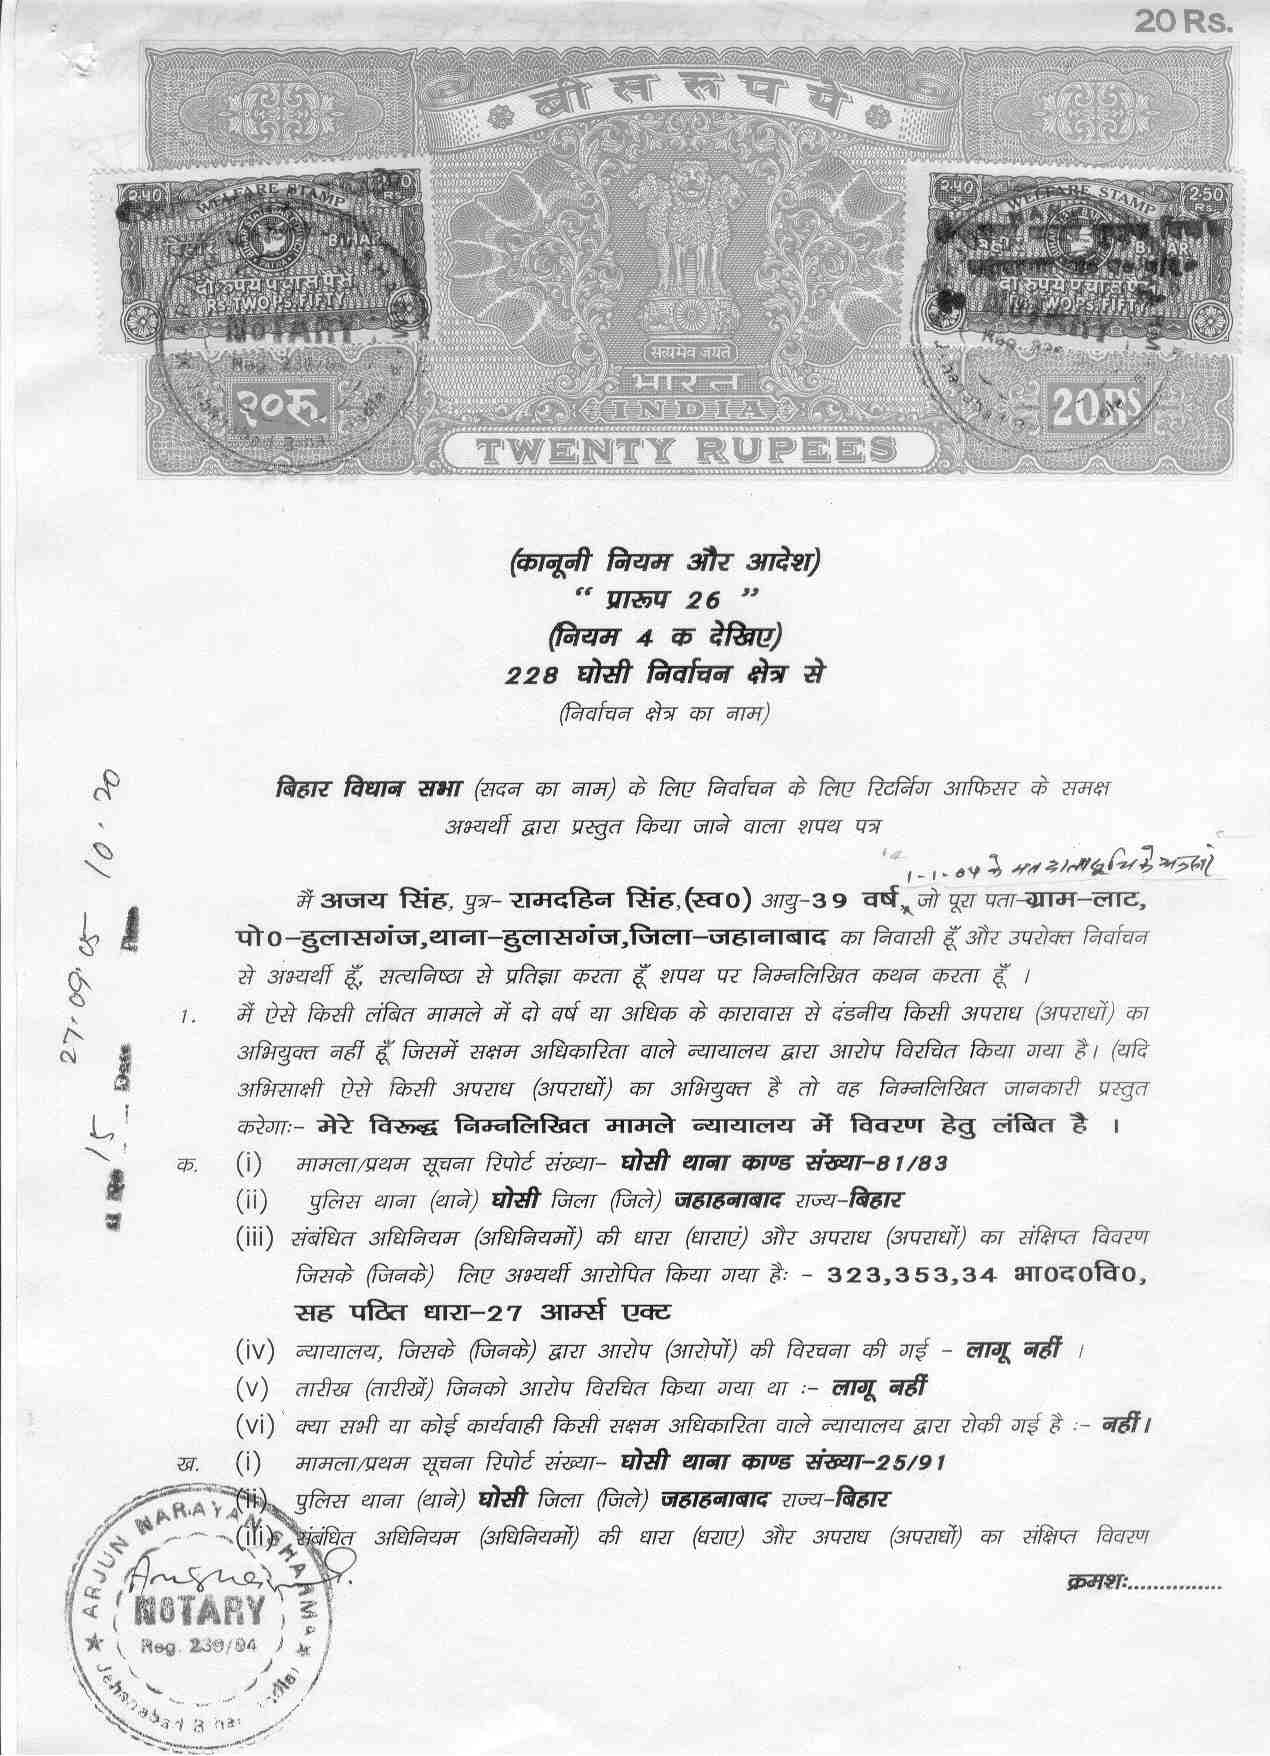 20 Rs.
बीस रुपये
२.५० WELFARE STAMP
बिहार BIHAR
दो रुपये पचास पैसे
RS. TWO P.S. FIFTY
NOTARY
Reg. 239/94
२.५० WELFARE STAMP 2.50
BIHAR
दो रुपये पचास पैसे
RS. TWO P.S. FIFTY
सत्यमेव जयते
भारत
INDIA
२०रु
20RS
TWENTY RUPEES
(कानूनी नियम और आदेश)
“ प्रारूप 26 ”
(नियम 4 क देखिए)
228 घोसी निर्वाचन क्षेत्र से
(निर्वाचन क्षेत्र का नाम)
बिहार विधान सभा (सदन का नाम) के लिए निर्वाचन के लिए रिटर्निग आफिसर के समक्ष
अभ्यर्थी द्वारा प्रस्तुत किया जाने वाला शपथ पत्र
1-1-04 के
मैं अजय सिंह, पुत्र- रामदहिन सिंह,(स्व0) आयु-39 वर्ष, जो पूरा पता-ग्राम-लाट,
पो0-हुलासगंज,थाना-हुलासगंज,जिला-जहानाबाद का निवासी हूँ और उपरोक्त निर्वाचन
से अभ्यर्थी हूँ, सत्यनिष्ठा से प्रतिज्ञा करता हूँ शपथ पर निम्नलिखित कथन करता हूँ ।
1. मैं ऐसे किसी लंबित मामले में दो वर्ष या अधिक के कारावास से दंडनीय किसी अपराध (अपराधों) का
अभियुक्त नहीं हूँ जिसमें सक्षम अधिकारिता वाले न्यायालय द्वारा आरोप विरचित किया गया है। (यदि
अभिसाक्षी ऐसे किसी अपराध (अपराधों) का अभियुक्त है तो वह निम्नलिखित जानकारी प्रस्तुत
करेगाः- मेरे विरूद्ध निम्नलिखित मामले न्यायालय में विवरण हेतु लंबित है ।
क. (i) मामला/प्रथम सूचना रिपोर्ट संख्या- घोसी थाना काण्ड संख्या-81/83
(ii) पुलिस थाना (थाने) घोसी जिला (जिले) जहाहनाबाद राज्य-बिहार
(iii) संबंधित अधिनियम (अधिनियमों) की धारा (धाराएं) और अपराध (अपराधों) का संक्षिप्त विवरण
जिसके (जिनके) लिए अभ्यर्थी आरोपित किया गया हैः - 323,353,34 भा0द0वि0,
सह पठित धारा-27 आर्म्स एक्ट
(iv) न्यायालय, जिसके (जिनके) द्वारा आरोप (आरोपों) की विरचना की गई - लागू नहीं ।
(v) तारीख (तारीखें) जिनको आरोप विरचित किया गया था :- लागू नहीं
(vi) क्या सभी या कोई कार्यवाही किसी सक्षम अधिकारिता वाले न्यायालय द्वारा रोकी गई है :- नहीं।
ख. (i) मामला/प्रथम सूचना रिपोर्ट संख्या- घोसी थाना काण्ड संख्या-25/91
(ii) पुलिस थाना (थाने) घोसी जिला (जिले) जहाहनाबाद राज्य-बिहार
(iii) संबंधित अधिनियम (अधिनियमों) की धारा (धराए) और अपराध (अपराधों) का संक्षिप्त विवरण
क्रमशः...............
15 Date 27.09.05 10.20
ARJUN NARAYAN SHARMA
NOTARY
Reg. 239/94
Jehanabad Bihar India